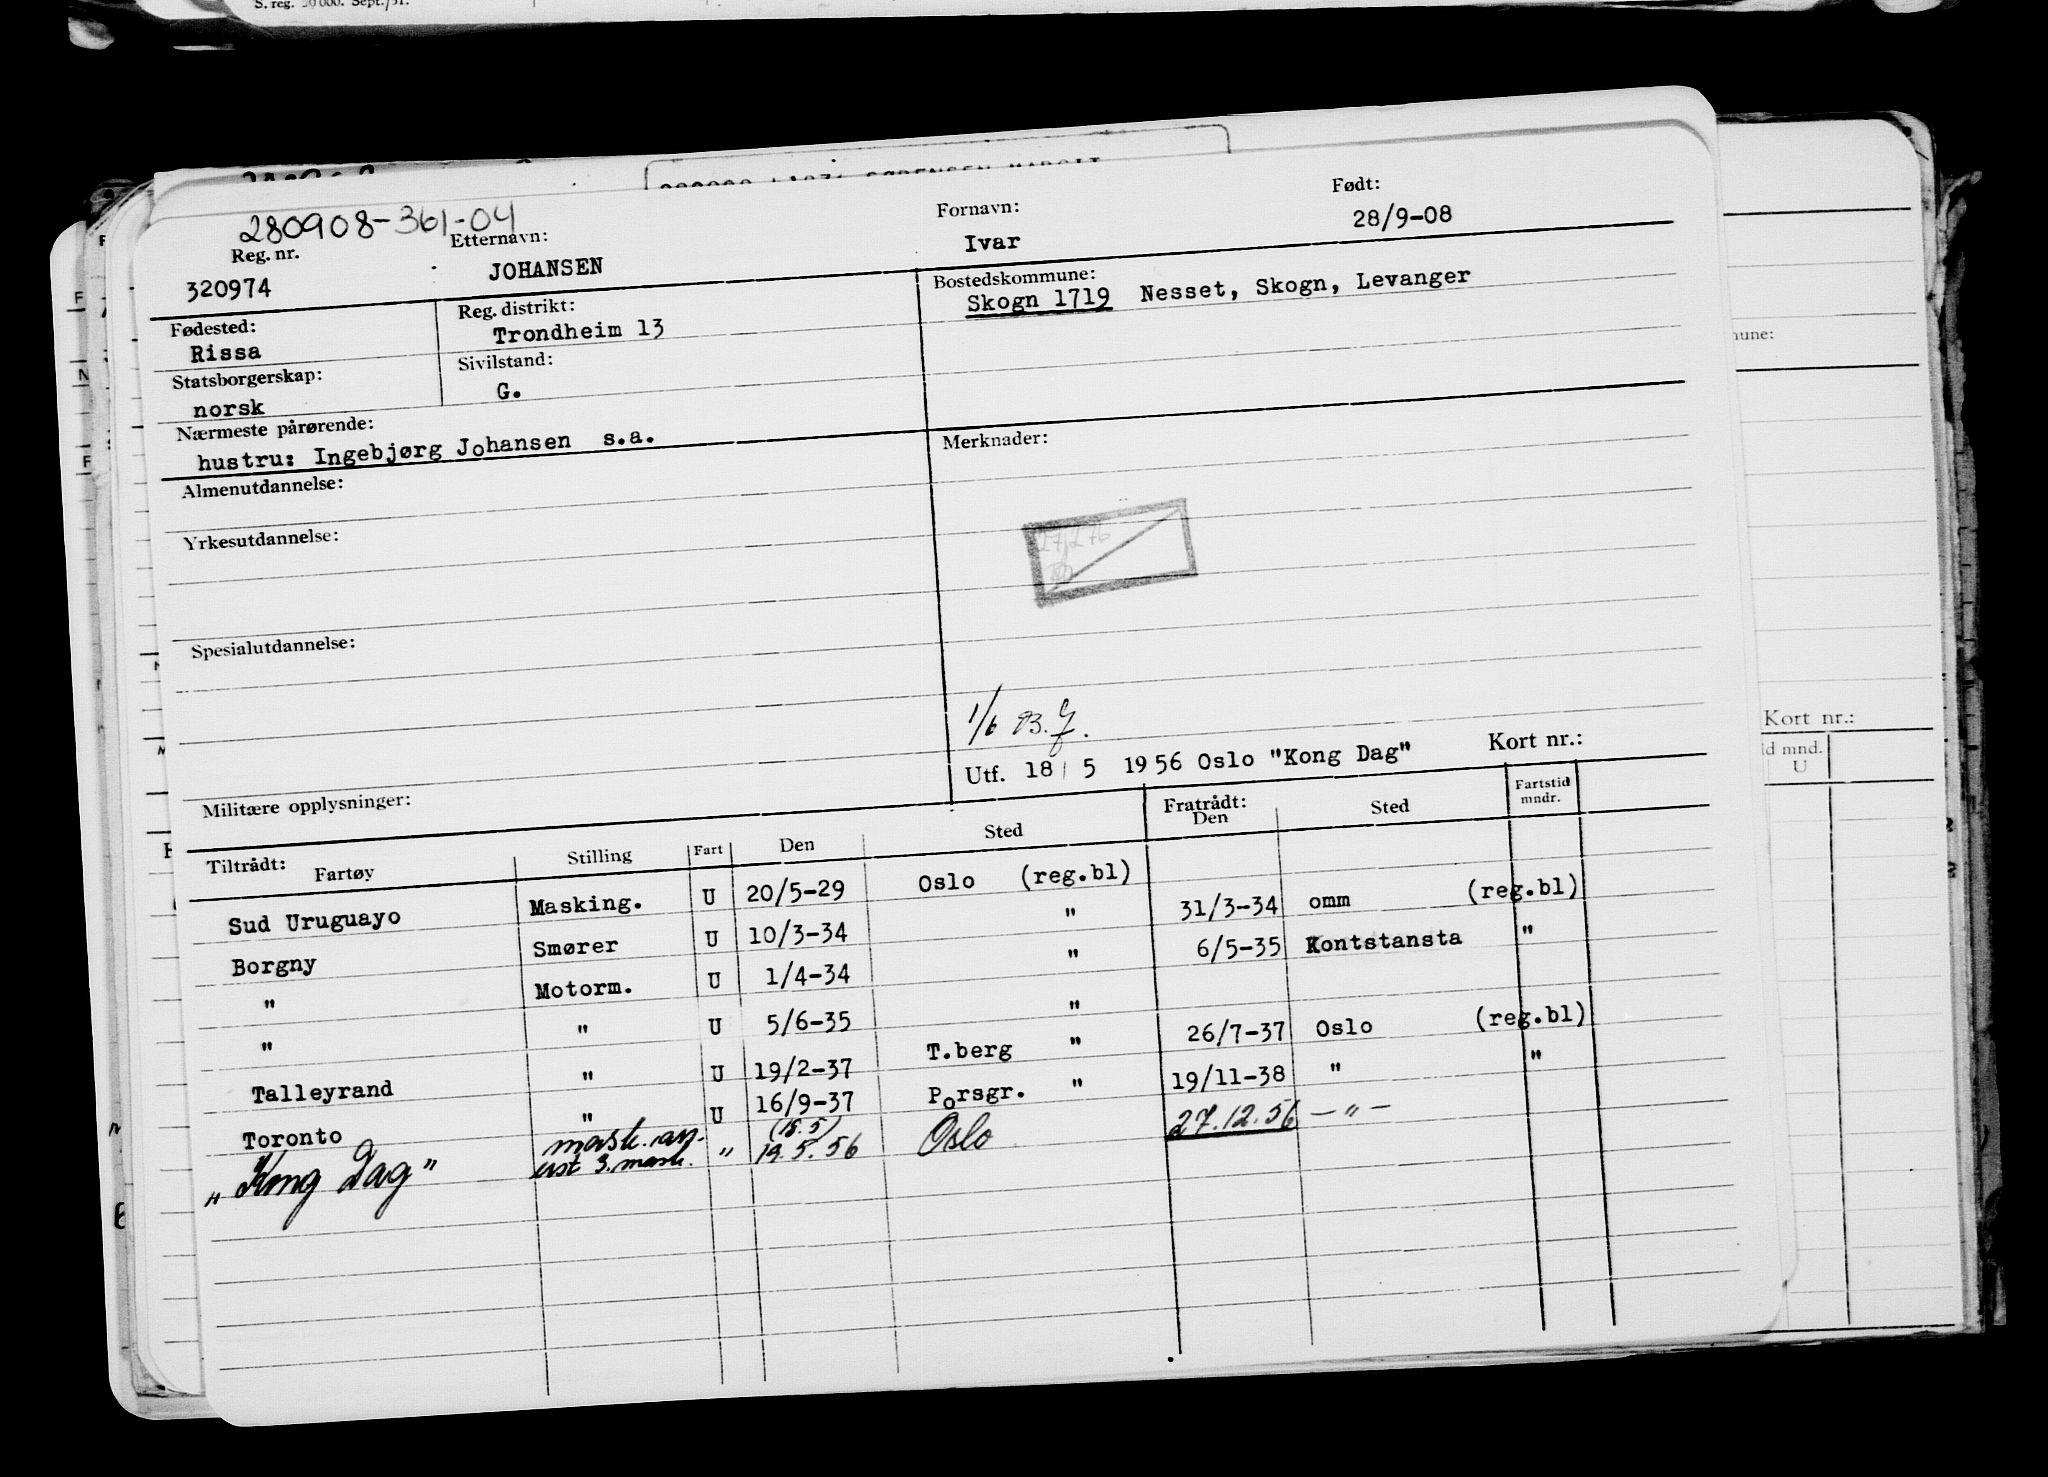 S. reg. 30 000. Sept./51.
280908-361-04
Reg. nr. Etternavn: Fornavn: Født:
320974 JOHANSEN Ivar 28/9-08
Fødested: Reg. distrikt: Bostedskommune:
Rissa Trondheim 13 Skogn 1719 Nesset, Skogn, Levanger
Statsborgerskap: Sivilstand:
norsk G.
Nærmeste pårørende:
hustru: Ingebjørg Johansen s.a.
Merknader:
Almenutdannelse:
Yrkesutdannelse:
Spesialutdannelse:
1/6 B.J.
Utf. 18/5 1956 Oslo "Kong Dag" Kort nr.:
Militære opplysninger:
Tiltrådt: Fartøy Stilling Fart Den Sted Fratrådt: Den Sted Fartstid mndr.
Sud Uruguayo Masking. U 20/5-29 Oslo (reg.bl) 31/3-34 omm (reg.bl)
Borgny Smører U 10/3-34 " 6/5-35 Kontstansta "
" Motorm. U 1/4-34 "
" " U 5/6-35 " 26/7-37 Oslo (reg.bl)
Talleyrand " U 19/2-37 T.berg " 19/11-38 " "
Toronto " U 16/9-37 Porsgr. "
"Kong Dag" mask. ass. " (18.5) 19.5.56 Oslo 27.12.56 — " —
3. mask.
mune:
Kort nr.:
id mnd.
U